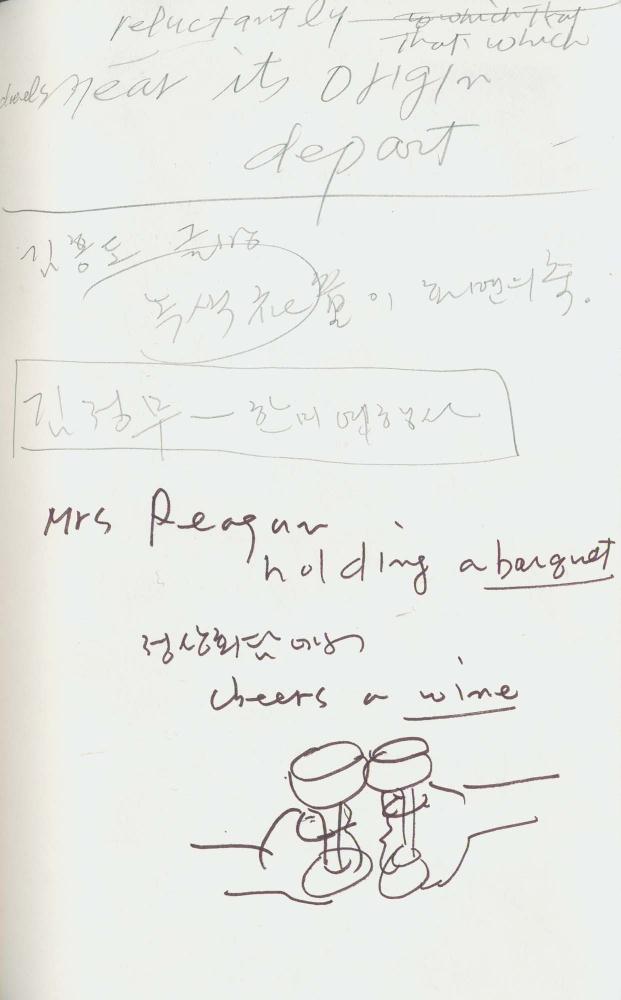 reluctantly to which that
that which
near its origin
depart
김홍도
녹색 치마 이 화면의 축.
김정무 - 한미여행사
Mrs Reagan
holding a barquet
정상회담에서
cheers a wine